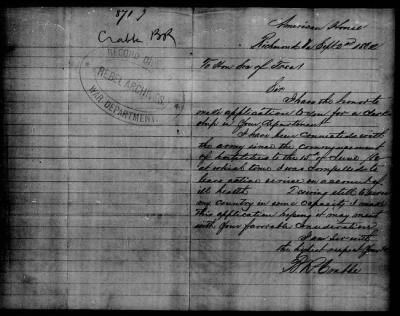 871 J
Crabb BR
RECORD DIVISION
REBEL ARCHIVES
WAR DEPARTMENT
American House
Richmond Va Sept 2nd 1862
To Hon Sec of Treas
Sir
I have the honor to
make application to you for a clerk
ship in your department
I have been connected with
the army since the commencement
of hostilities to the 15th of June,
at which time I was compelled to
leave active service on account of
ill health. I desiring still to serve
my country in some capacity I make
this application hoping it may meet
with your favorable consideration
I am Sir with
the highest respect Your